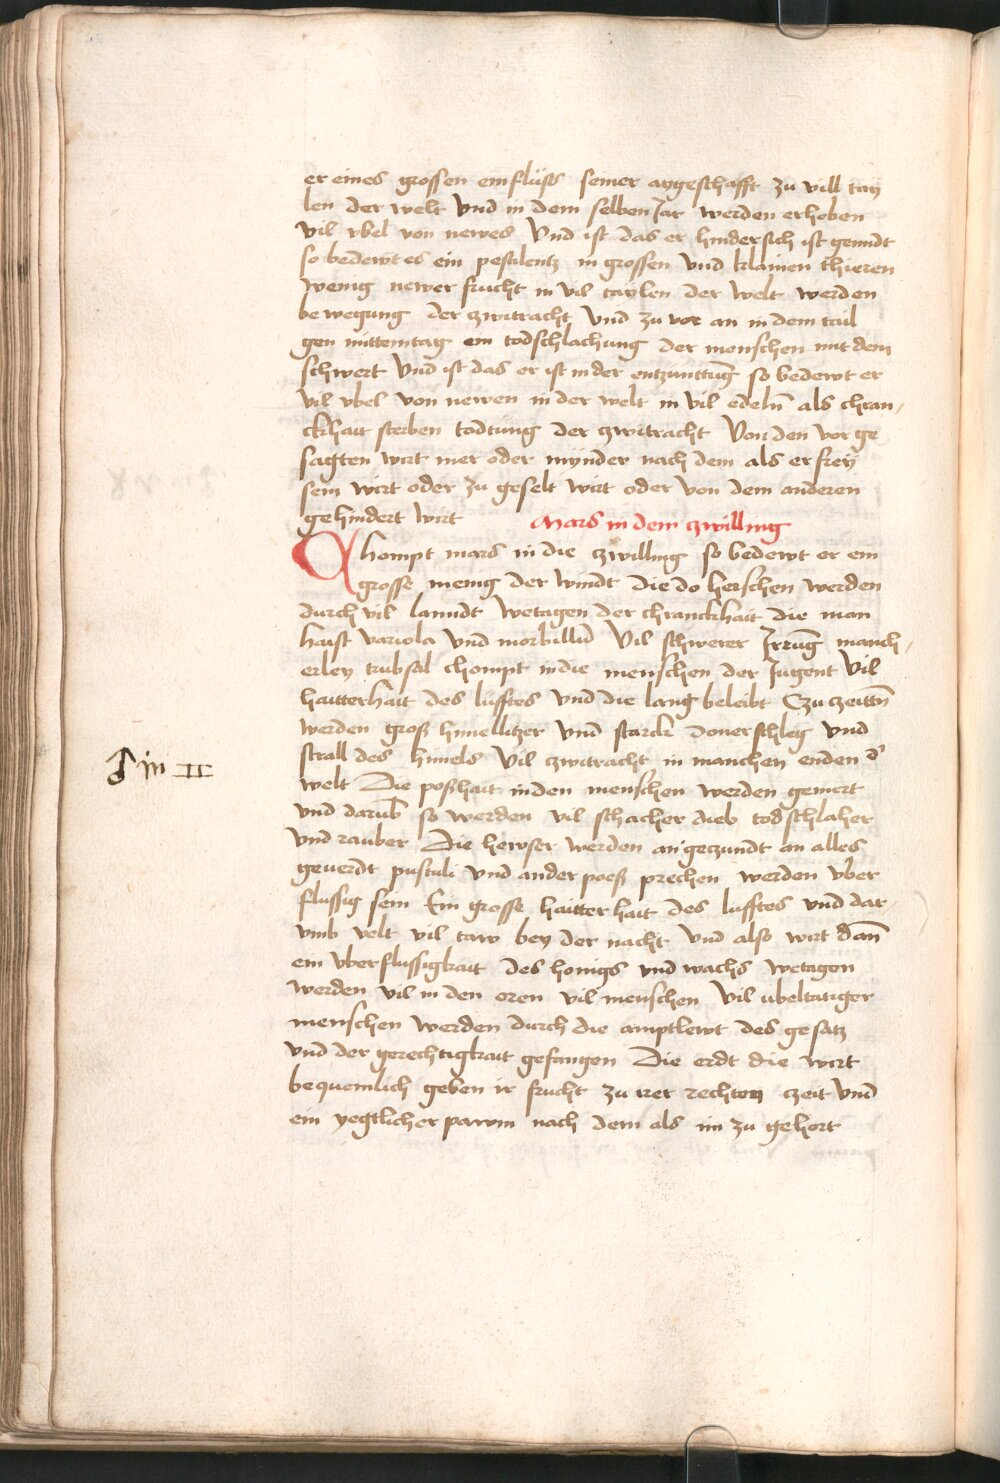 er eines grossen einfluss seiner aygeschafft zu vill tay
len der welt Vnd in dem selben Jar werden erheben
vil vbel von newes Vnd ist das er hindersich ist genndt
so bedewt es ein pestilentz in grossen vnd klainen thieren
wenig newer frucht in vil taylen der welt werden
bewegung der zwitracht vnd zu vor an in dem tail
gen mittemtag ein todschlachung der menschen mit dem
schwert Vnd ist das er ist in der entzunttug so bedewt er
vil vbel von newen in der welt in vil edeln als chran,
ckhait sterben todtung der zwitracht Von den vor ge
sagten wirt mer oder mynder nach dem als er frey
sein wirt oder zu geselt wirt oder von dem anderen
gehindert wirt Mars in dem zwilling
Chompt mars in die zwilling so bedewt er ein
grosse menig der windt die do herschen werden
durch vil lanndt wetagen der chranckhait die man
haist variola vnd morbillud Vil schwerer Jrrug manch,
erley trubsal chompt in die menschen der Jugent Vil
haitterhait des lufftes vnd die lang beleibt Czu czeittn
werden groß himellitzer vnd starck donerschleg vnd
strall des himels Vil zwitracht in manchen enden d
welt Die poßhait in den menschen werden gemert
vnd darub so werden vil schacher dieb todschlaher
vnd rauber Die hewser werden angeczundt an alles
geuerdt pustuli vnd ander poeß prechen werden vber
flussig sein Ein grosse haitterhait des lufftes vnd dar,
vmb velt vil taw bey der nacht Vnd also wirt dan
ein vberflussigkait des honigs vnd wachs wetagen
werden vil in den oren vil menschen Vil ubeltatiger
menschen werden durch die amptlewt des gesatz
vnd der gerechtigkait gefangen Die erdt die wirt
bequemlich geben ir frucht zu irer rechten czeit vnd
ein yegtlicher pawm nach dem als im zu gehort
♂ in II